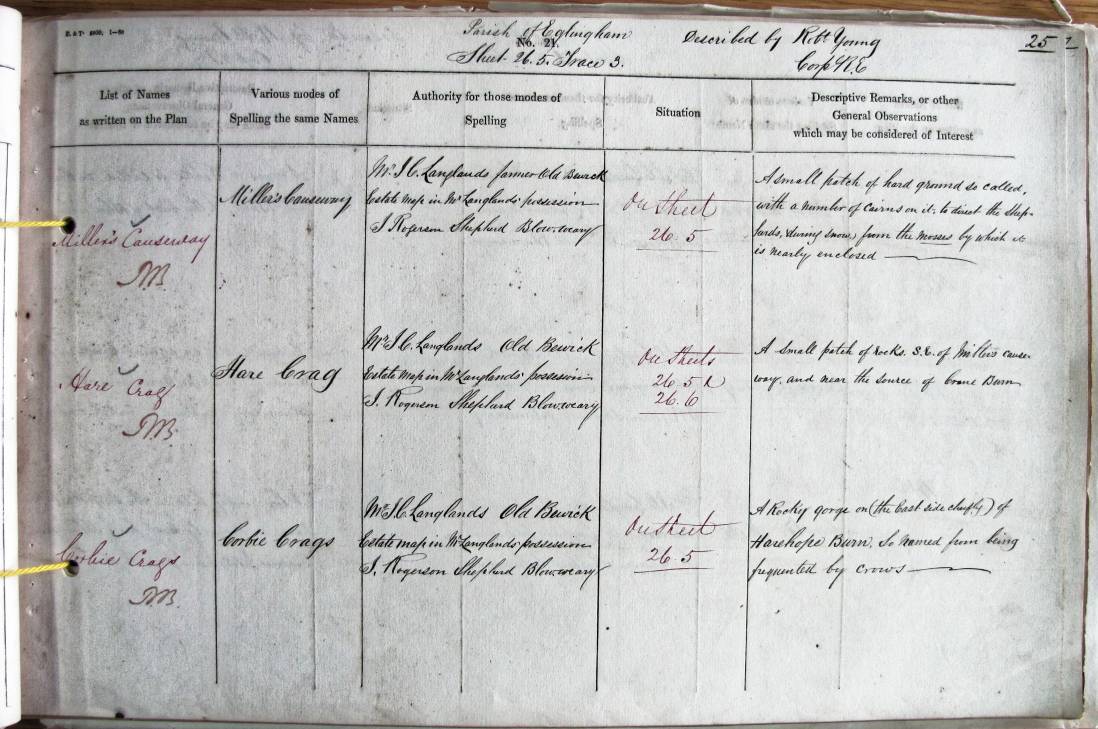 E. & T. 4000, 1—60
Parish of Eglingham
No. 21.
Sheet 26.5. Trace 3.
Described by Robt Young
Corpl R.E
25
List of Names
as written on the Plan
Various modes of
Spelling the same Names
Authority for those modes of
Spelling
Situation
Descriptive Remarks, or other
General Observations
which may be considered of Interest
Miller's Causeway
Miller's Causeway
Mr. J. C. Langlands farmer Old Bewick
Estate map in Mr Langlands' possession
J. Rogerson Shepherd Blow-weary
On Sheet
26.5
A small patch of hard ground so called,
with a number of cairns on it, to direct the Shep-
herds, during snow, from the mosses by which it
is nearly enclosed
Hare Crag
Hare Crag
Mr J. C. Langlands Old Bewick
Estate Map in Mr Langlands' possession
J. Rogerson Shepherd Blow-weary
On Sheets
26.5 &
26.6
A small patch of rocks. S.E. of Millers cause-
way, and near the source of Crane Burn
Corbie Crags
Corbie Crags
Mr J. C. Langlands Old Bewick
Estate map in Mr Langlands' possession
J. Rogerson Shepherd Blow-weary
On Sheet
26.5
A Rocky gorge on (the East side chiefly) of
Harehope Burn, So named from being
frequented by crows